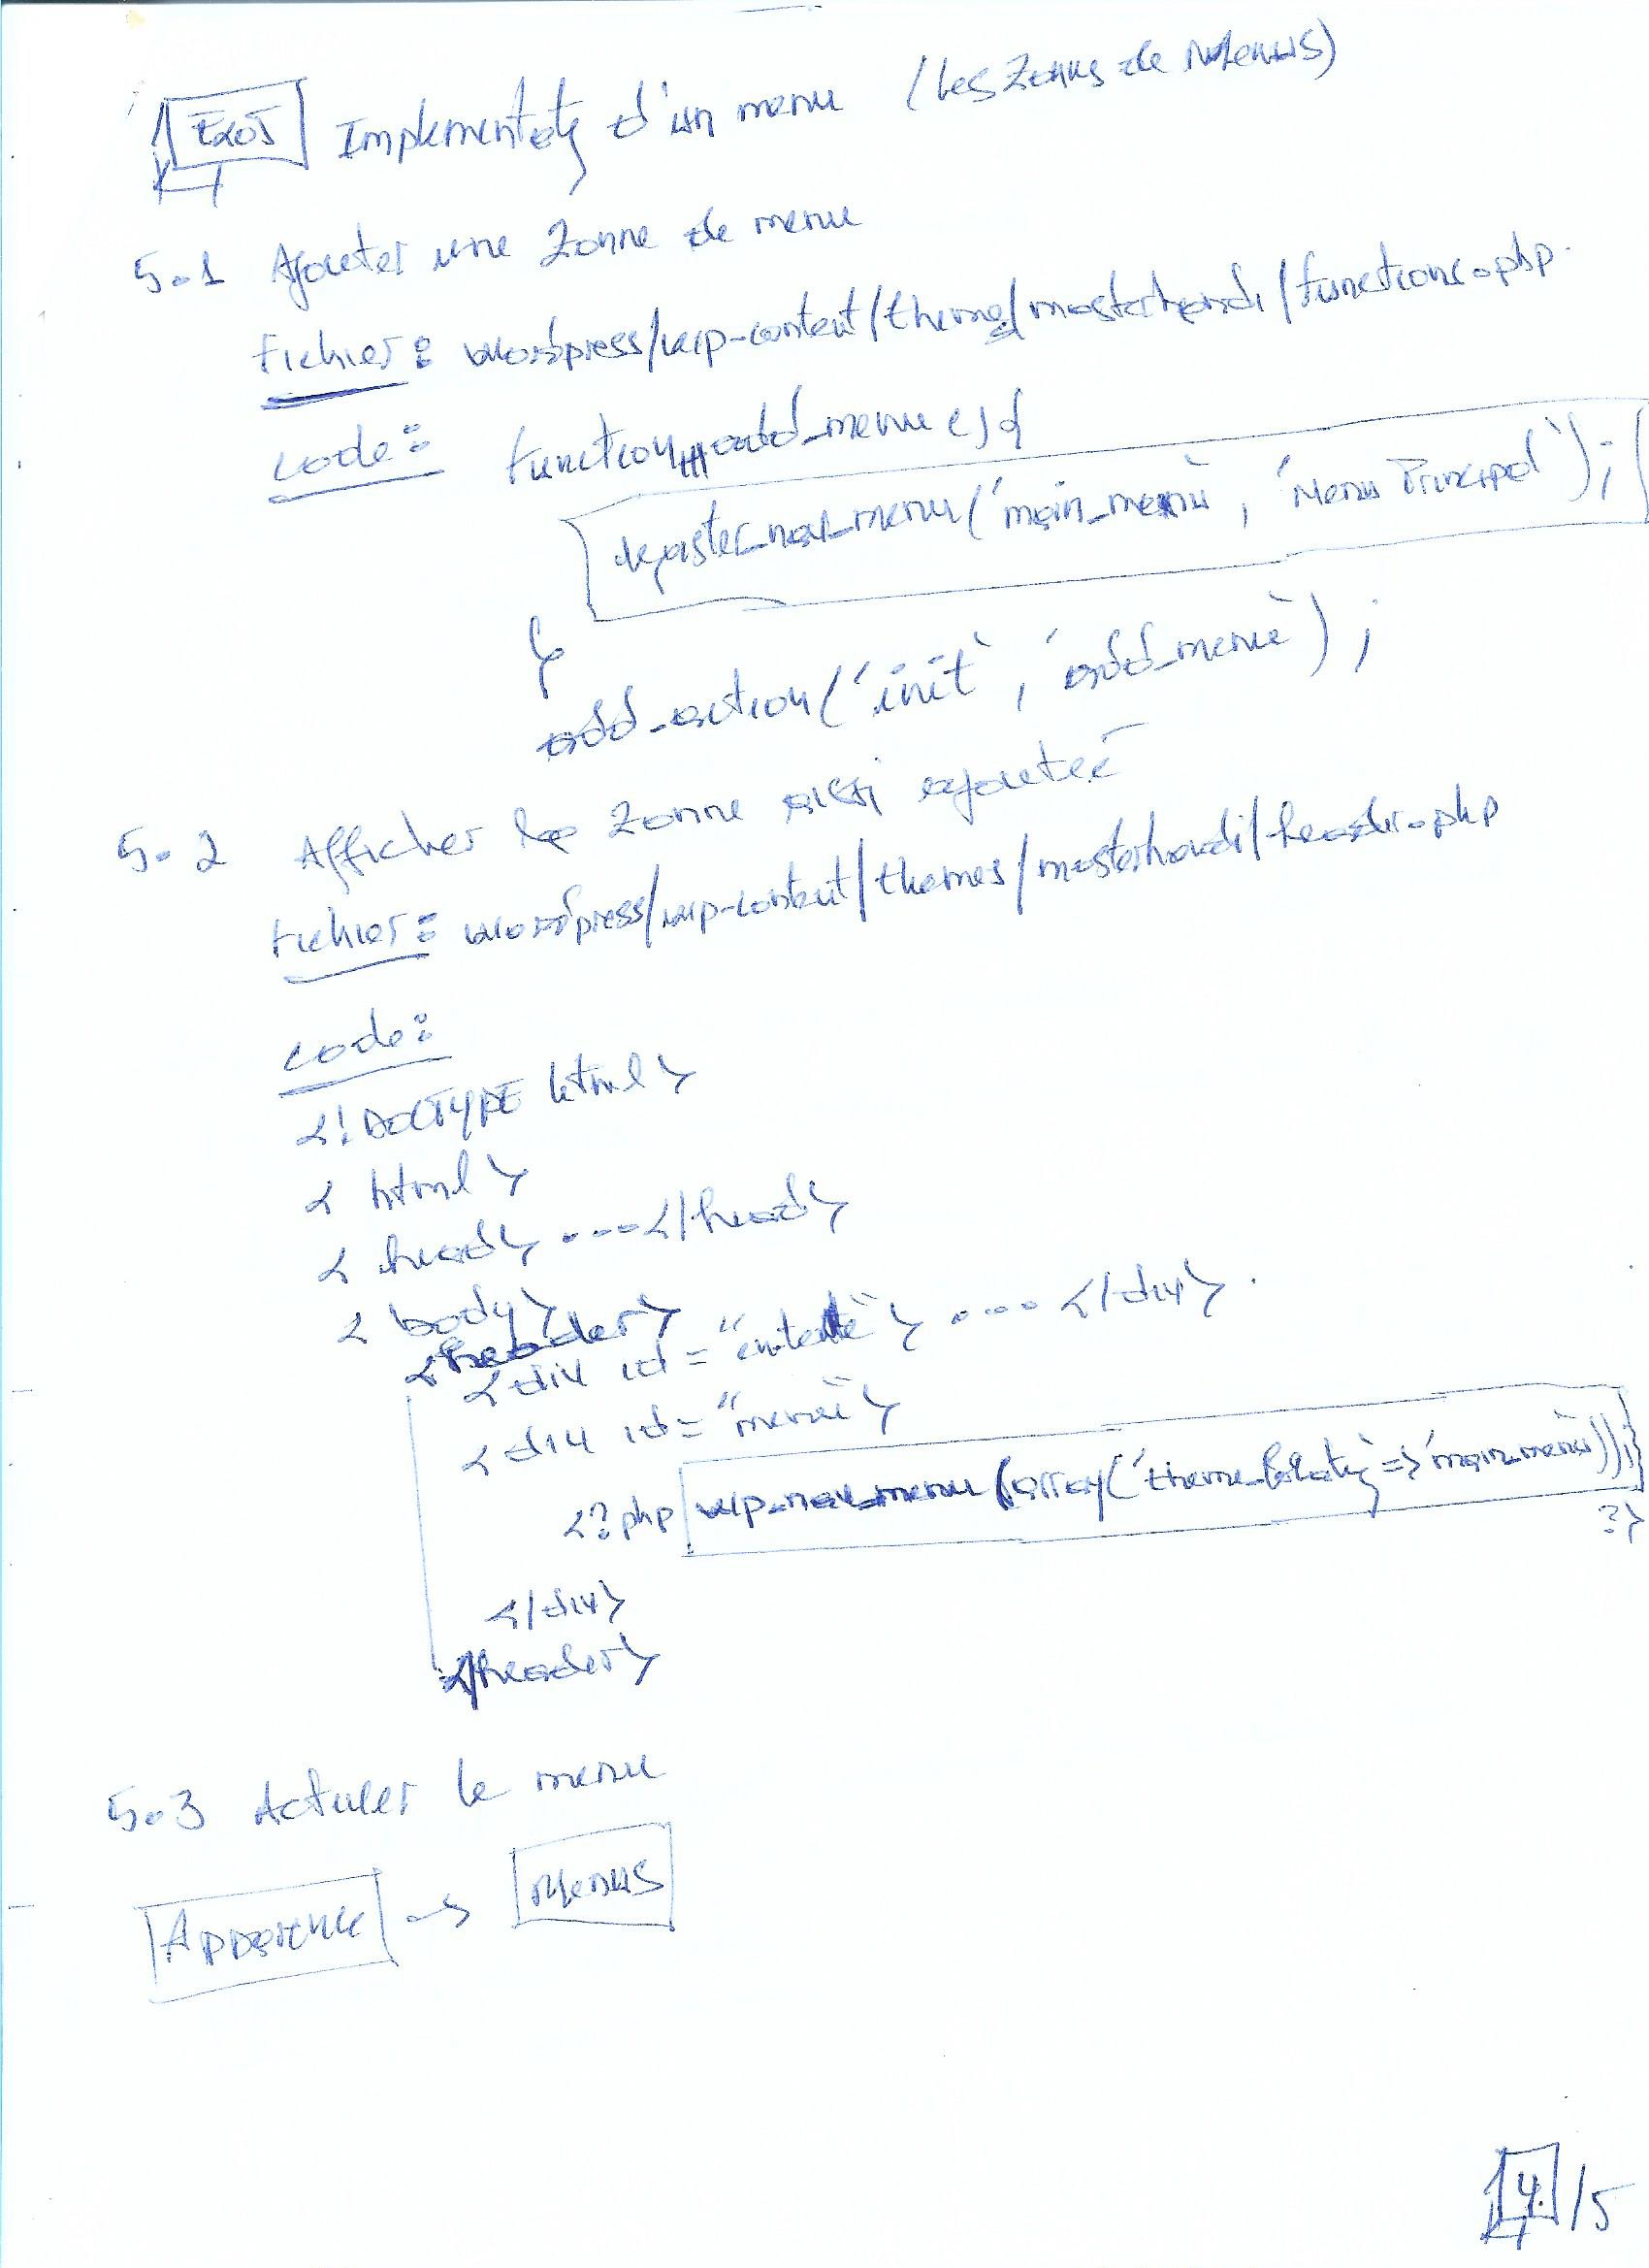 Exo5 Implementat° d'un menu (Les Zones de Menus)
5.1 Ajouter une Zonne de menu
Fichier: wordpress/wp-content/themes/masterhandi/functions.php
code: function add_menu(){
register_nav_menu('main_menu', 'Menu Principal');
}
add_action('init', 'add_menu');
5.2 Afficher la Zonne ajoutée
Fichier: wordpress/wp-content/themes/masterhandi/header.php
code:
<!DOCTYPE html>
<html>
<head> ... </head>
<body>
<header>
<div id="entete"> ... </div>
<div id="menu">
<?php wp_nav_menu(array('theme_locat°' => 'main_menu'));
?>
</div>
</header>
5.3 Activer le menu
Apparence -> Menus
4/5